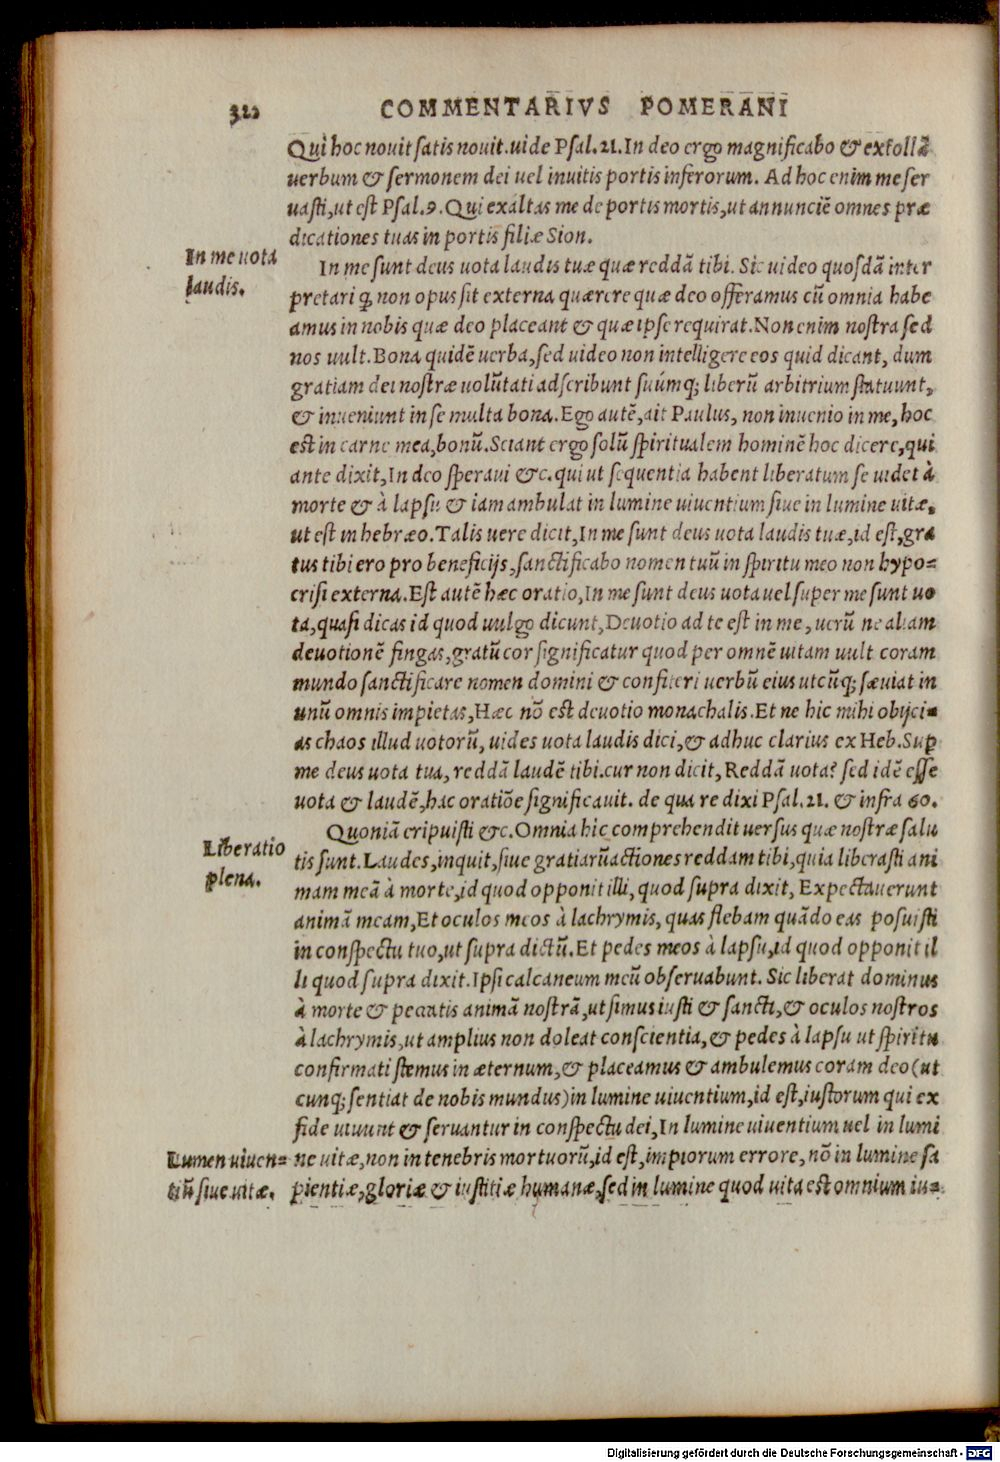 320 COMMENTARIVS POMERANI
Qui hoc nouit satis nouit. uide Psal. 21. In deo ergo magnificabo & extollā
uerbum & sermonem dei uel inuitis portis inferorum. Ad hoc enim me ser
uasti, ut est Psal. 9. Qui exaltas me de portis mortis, ut annunciē omnes præ
dicationes tuas in portis filiæ Sion.
In me uota
laudis.
In me sunt deus uota laudis tuæ quæ reddā tibi. Sic uideo quosdā inter
pretari ꝙ non opus sit externa quærere quæ deo offeramus cū omnia habe
amus in nobis quæ deo placeant & quæ ipse requirat. Non enim nostra sed
nos uult. Bona quidē uerba, sed uideo non intelligere eos quid dicant, dum
gratiam dei nostræ uolūtati adscribunt suúmq; liberū arbitrium statuunt,
& inueniunt in se multa bona. Ego autē, ait Paulus, non inuenio in me, hoc
est in carne mea, bonū. Sciant ergo solū spiritualem hominē hoc dicere, qui
ante dixit, In deo speraui &c. qui ut sequentia habent liberatum se uidet à
morte & à lapsu & iam ambulat in lumine uiuentium siue in lumine uitæ,
ut est in hebræo. Talis uere dicit, In me sunt deus uota laudis tuæ, id est, gra
tus tibi ero pro beneficijs, sanctificabo nomen tuū in spiritu meo non hypo=
crisi externa. Est autē hæc oratio, In me sunt deus uota uel super me sunt uo
ta, quasi dicas id quod uulgo dicunt, Deuotio ad te est in me, uerū ne aliam
deuotionē fingas, gratū cor significatur quod per omnē uitam uult coram
mundo sanctificare nomen domini & confiteri uerbū eius utcūq; sæuiat in
unū omnis impietas, Hæc nō est deuotio monachalis. Et ne hic mihi obijci=
as chaos illud uotorū, uides uota laudis dici, & adhuc clarius ex Heb. Sup
me deus uota tua, reddā laudē tibi. cur non dicit, Reddā uota? sed idē esse
uota & laudē, hac oratiōe significauit. de qua re dixi Psal. 21. & infra 60.
Liberatio
plena.
Quoniā eripuisti &c. Omnia hic comprehendit uersus quæ nostræ salu
tis sunt. Laudes, inquit, siue gratiarūactiones reddam tibi, quia liberasti ani
mam meā à morte, id quod opponit illi, quod supra dixit, Expectauerunt
animā meam, Et oculos meos à lachrymis, quas flebam quādo eas posuisti
in conspectu tuo, ut supra dictū. Et pedes meos à lapsu, id quod opponit il
li quod supra dixit. Ipsi calcaneum meū obseruabunt. Sic liberat dominus
à morte & peccatis animā nostrā, ut simus iusti & sancti, & oculos nostros
à lachrymis, ut amplius non doleat conscientia, & pedes à lapsu ut spiritu
confirmati stemus in æternum, & placeamus & ambulemus coram deo (ut
cunq; sentiat de nobis mundus) in lumine uiuentium, id est, iustorum qui ex
fide uiuunt & seruantur in conspectu dei, In lumine uiuentium uel in lumi
Lumen uiuen=
tiū siue uitæ.
ne uitæ, non in tenebris mortuorū, id est, impiorum errore, nō in lumine sa
pientiæ, gloriæ & iustitiæ humanæ, sed in lumine quod uita est omnium iu=
Digitalisierung gefördert durch die Deutsche Forschungsgemeinschaft - DFG